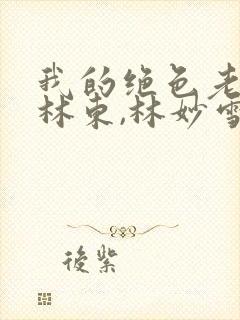 我的绝色老
林东,林妙雪
後紫